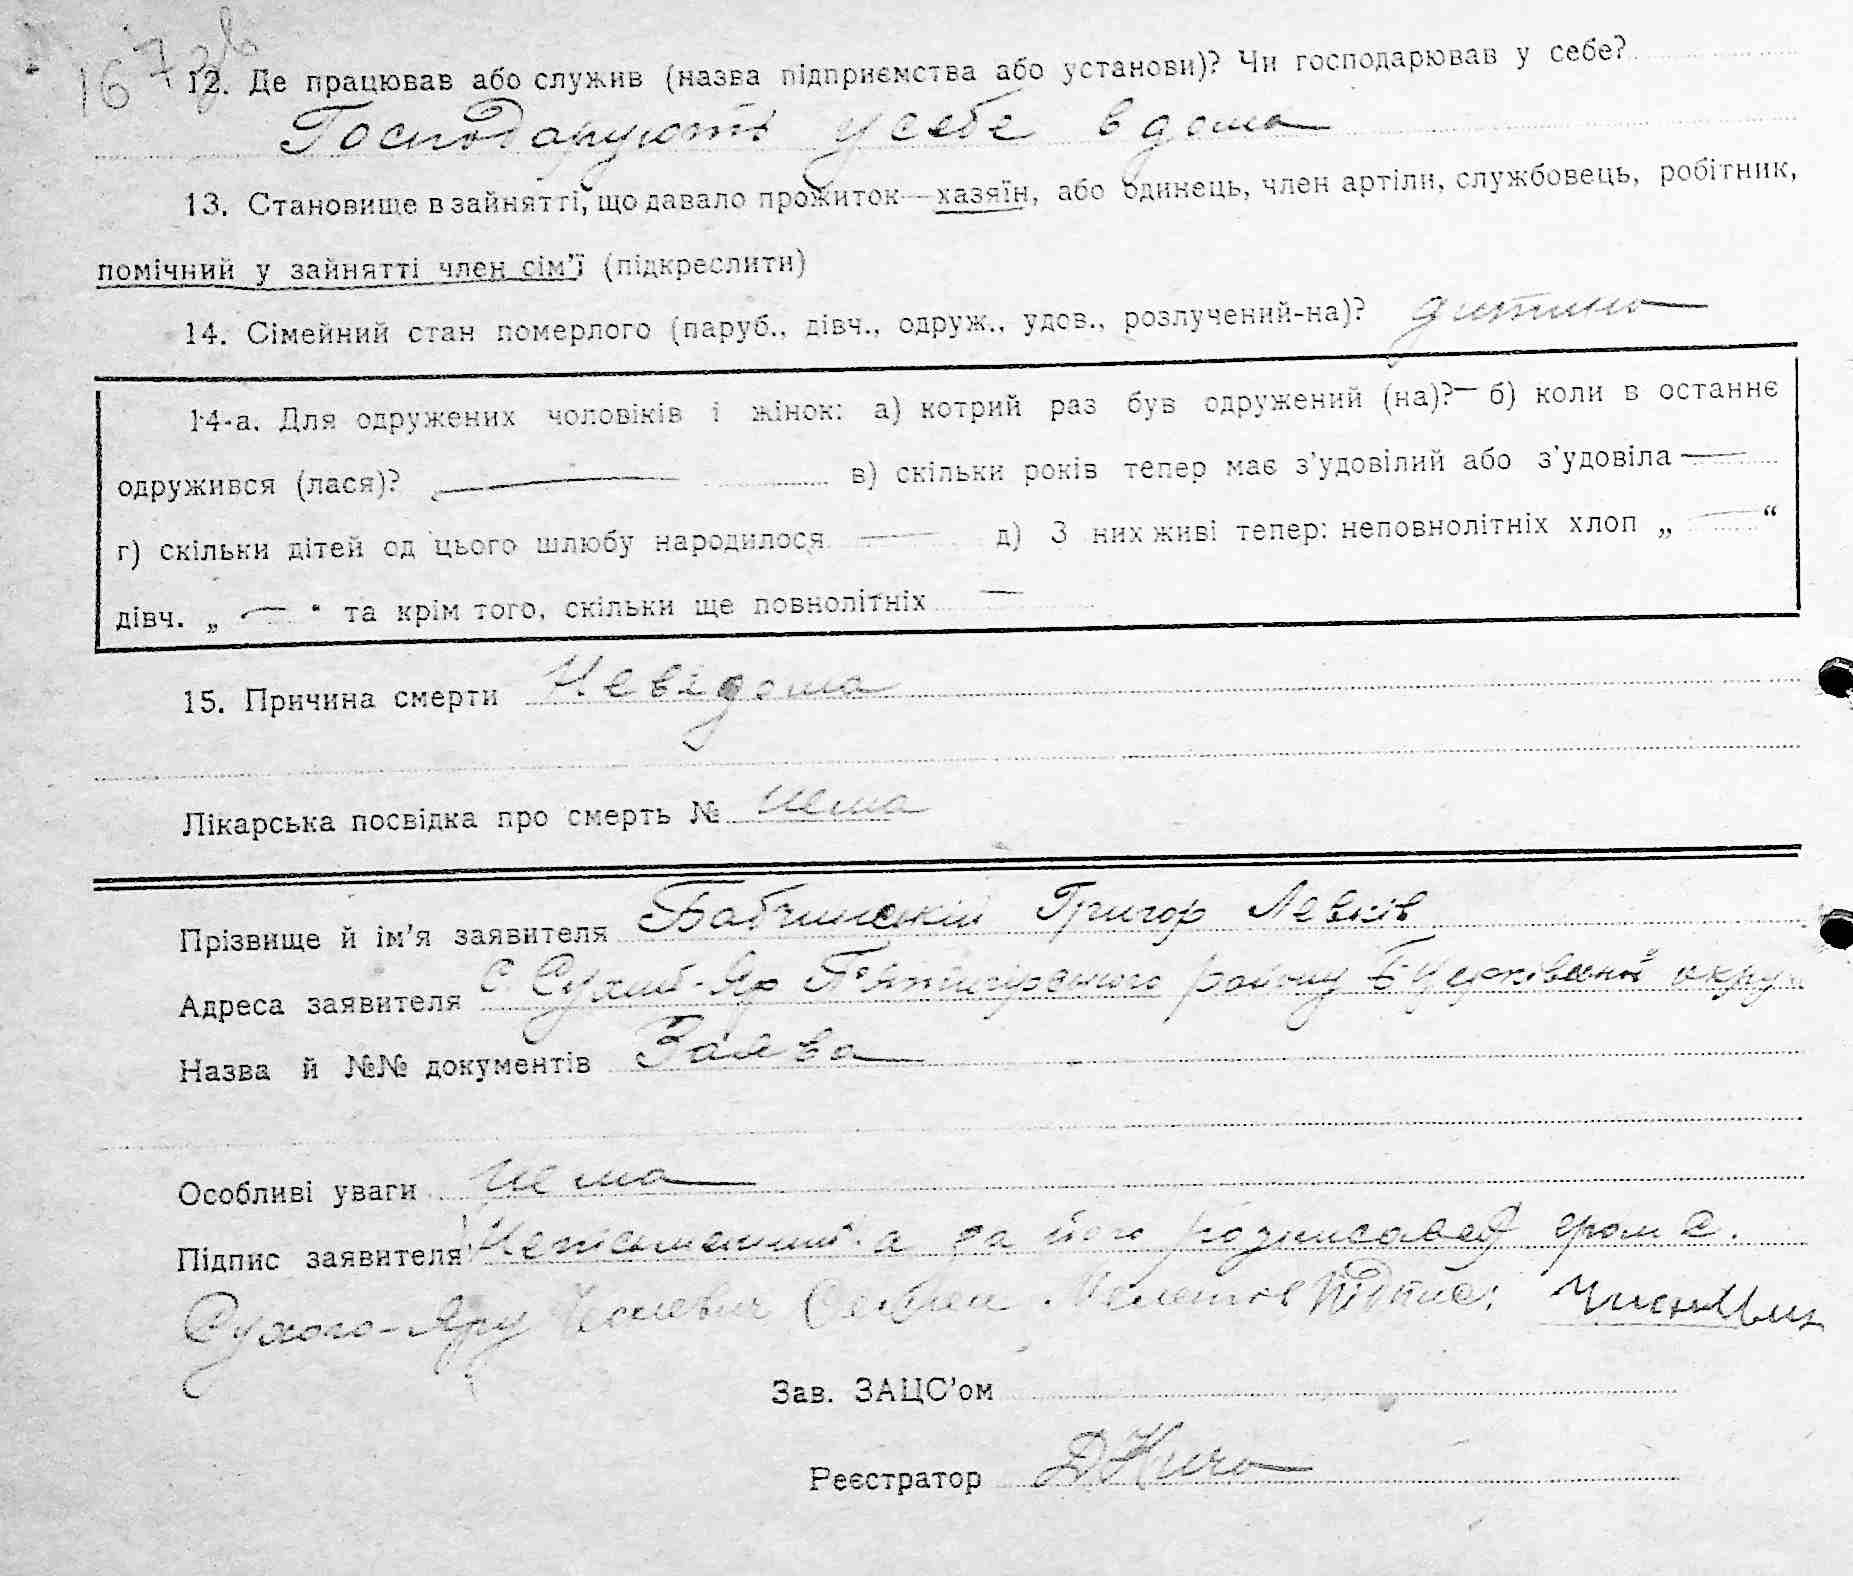 167зв
12. Де працював або служив (назва підприємства або установи)? Чи господарював у себе?
Господарують у себе вдома
13. Становище в зайнятті, що давало прожиток—хазяїн, або одинець, член артіли, службовець, робітник,
помічний у зайнятті член сім'ї (підкреслити)
14. Сімейний стан померлого (паруб., дівч., одруж., удов., розлучений-на)? дитина
14-а. Для одружених чоловіків і жінок: а) котрий раз був одружений (на)?— б) коли в останнє
одружився (лася)? — в) скільки років тепер має з'удовілий або з'удовіла —
г) скільки дітей од цього шлюбу народилося — д) З них живі тепер: неповнолітніх хлоп „ — “
дівч. „ — “ та крім того, скільки ще повнолітніх —
15. Причина смерти Невідома
Лікарська посвідка про смерть № нема
Прізвище й ім'я заявителя Бабчинській Григор Левків
Адреса заявителя с. Сухий-Яр П'ятигорського району Б Церківської окру
Назва й №№ документів Заява
Особливі уваги нема
Підпис заявителя Неписьменний а за його розписався гром с.
Сухого-Яру Підпис:
Зав. ЗАЦС'ом
Реєстратор